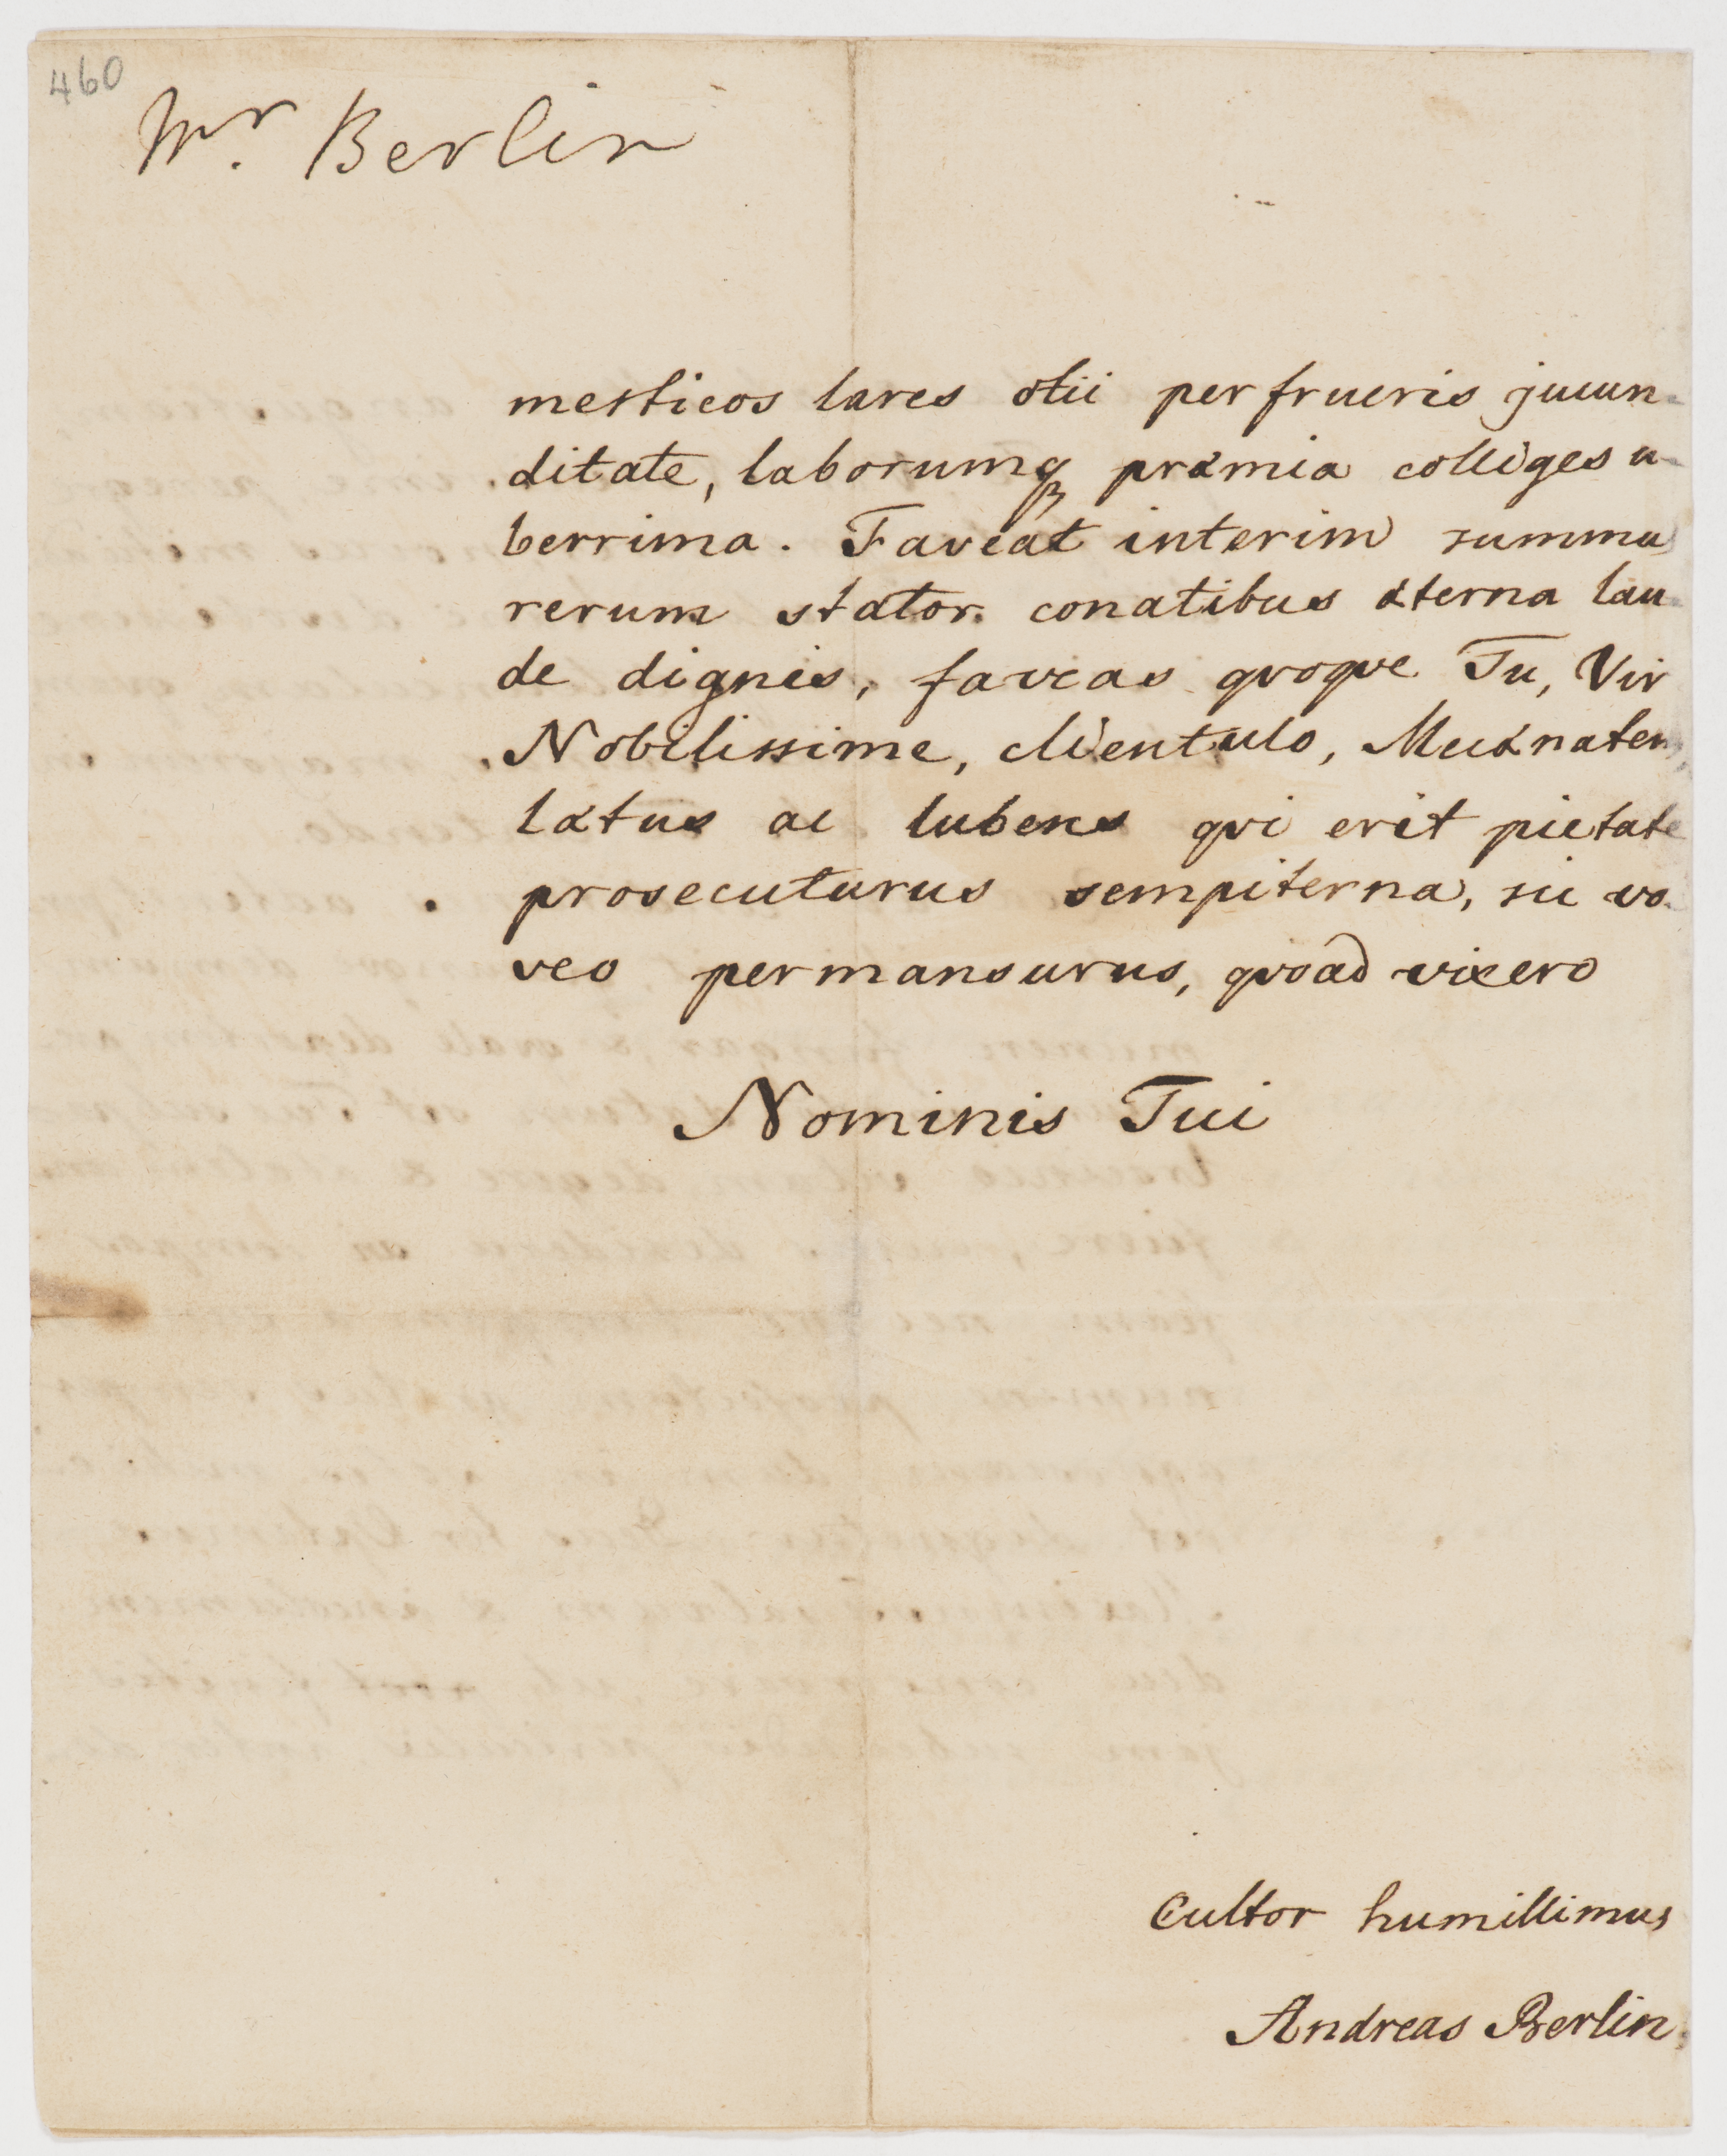 460
Mr. Berlin
mesticos lares otii perfrueris jucun-
ditate, laborumqꝫ præmia colliges u-
berrima. Faveat interim summu
rerum stator conatibus æterna lau-
de dignis, faveas qvoqve Tu, Vir
Nobilissime, clientulo, Mecænatem,
lætus ac lubens qvi erit pietate
prosecuturus sempiterna, sic vo-
veo permansurus, qvoad vixero
Nominis Tui
Cultor humillimus
Andreas Berlin.